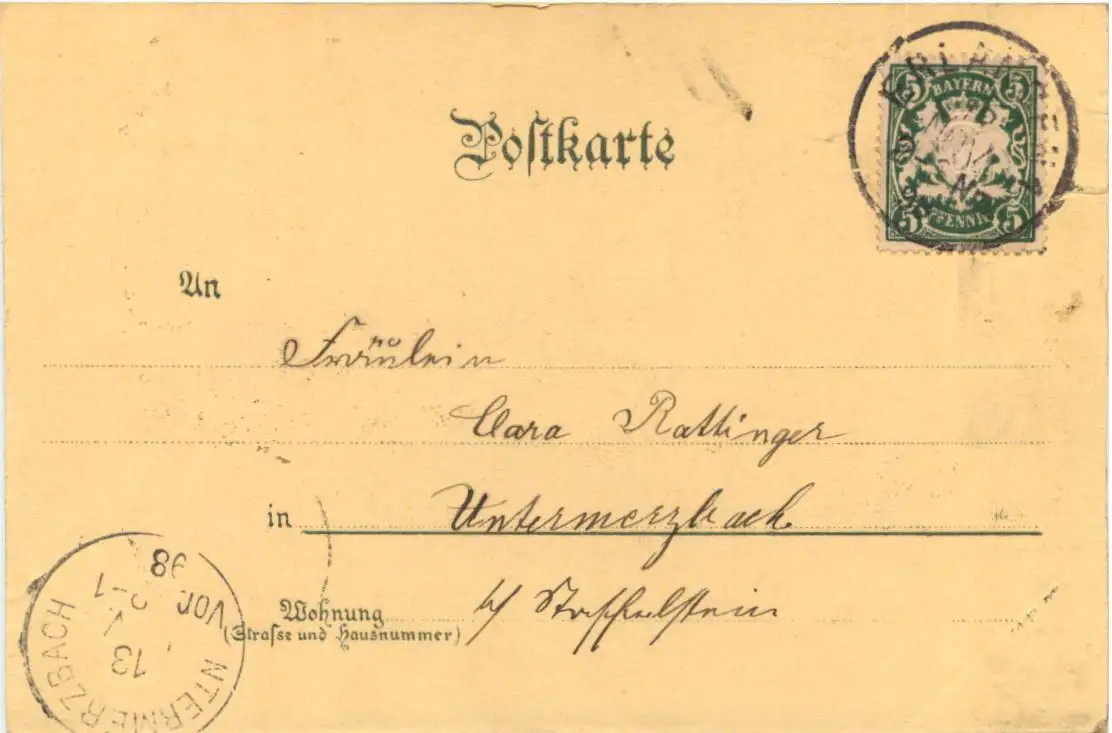 Postkarte
5 BAYERN 5
5 PFENNIG 5
NOV
An
Fräulein
Clara Rattinger
in Untermerzbach
Wohnung
(Straße und Hausnummer)
b/ Staffelstein
NTERMERZBACH
13
VOR
98